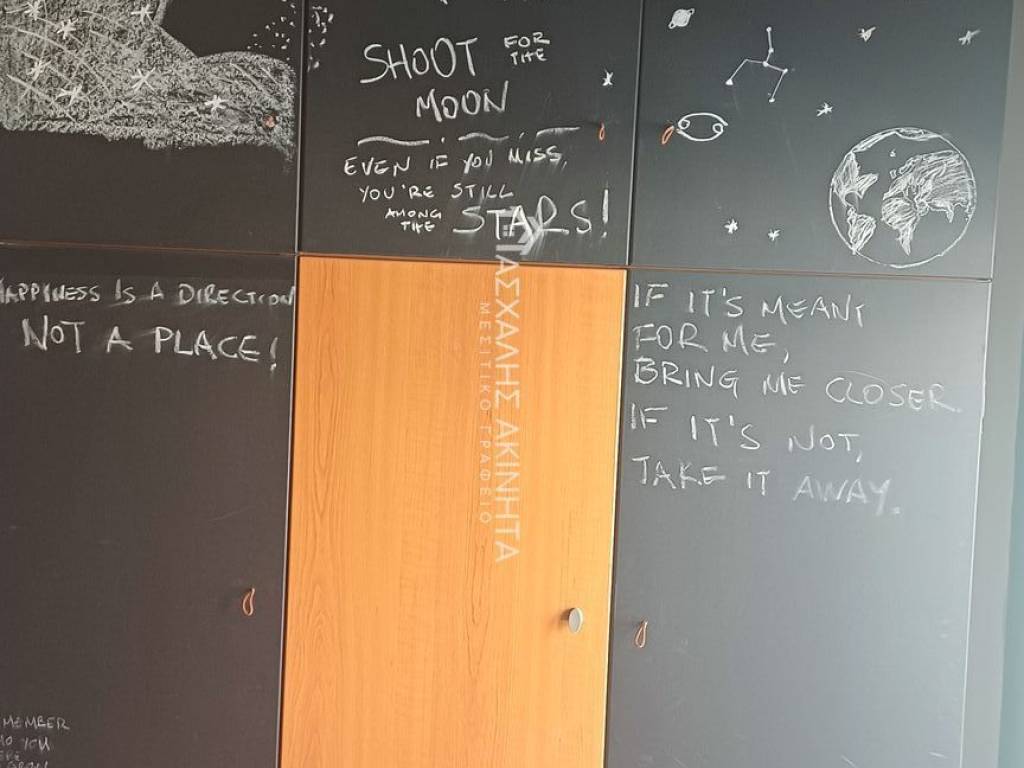 SHOOT FOR THE
MOON
EVEN IF YOU MISS,
YOU'RE STILL
AMONG THE STARS!
HAPPINESS IS A DIRECTION
NOT A PLACE!
IF IT'S MEANT
FOR ME,
BRING ME CLOSER.
IF IT'S NOT,
TAKE IT AWAY.
ΠΑΣΧΑΛΗΣ ΑΚΙΝΗΤΑ
ΜΕΣΙΤΙΚΟ ΓΡΑΦΕΙΟ
YOU